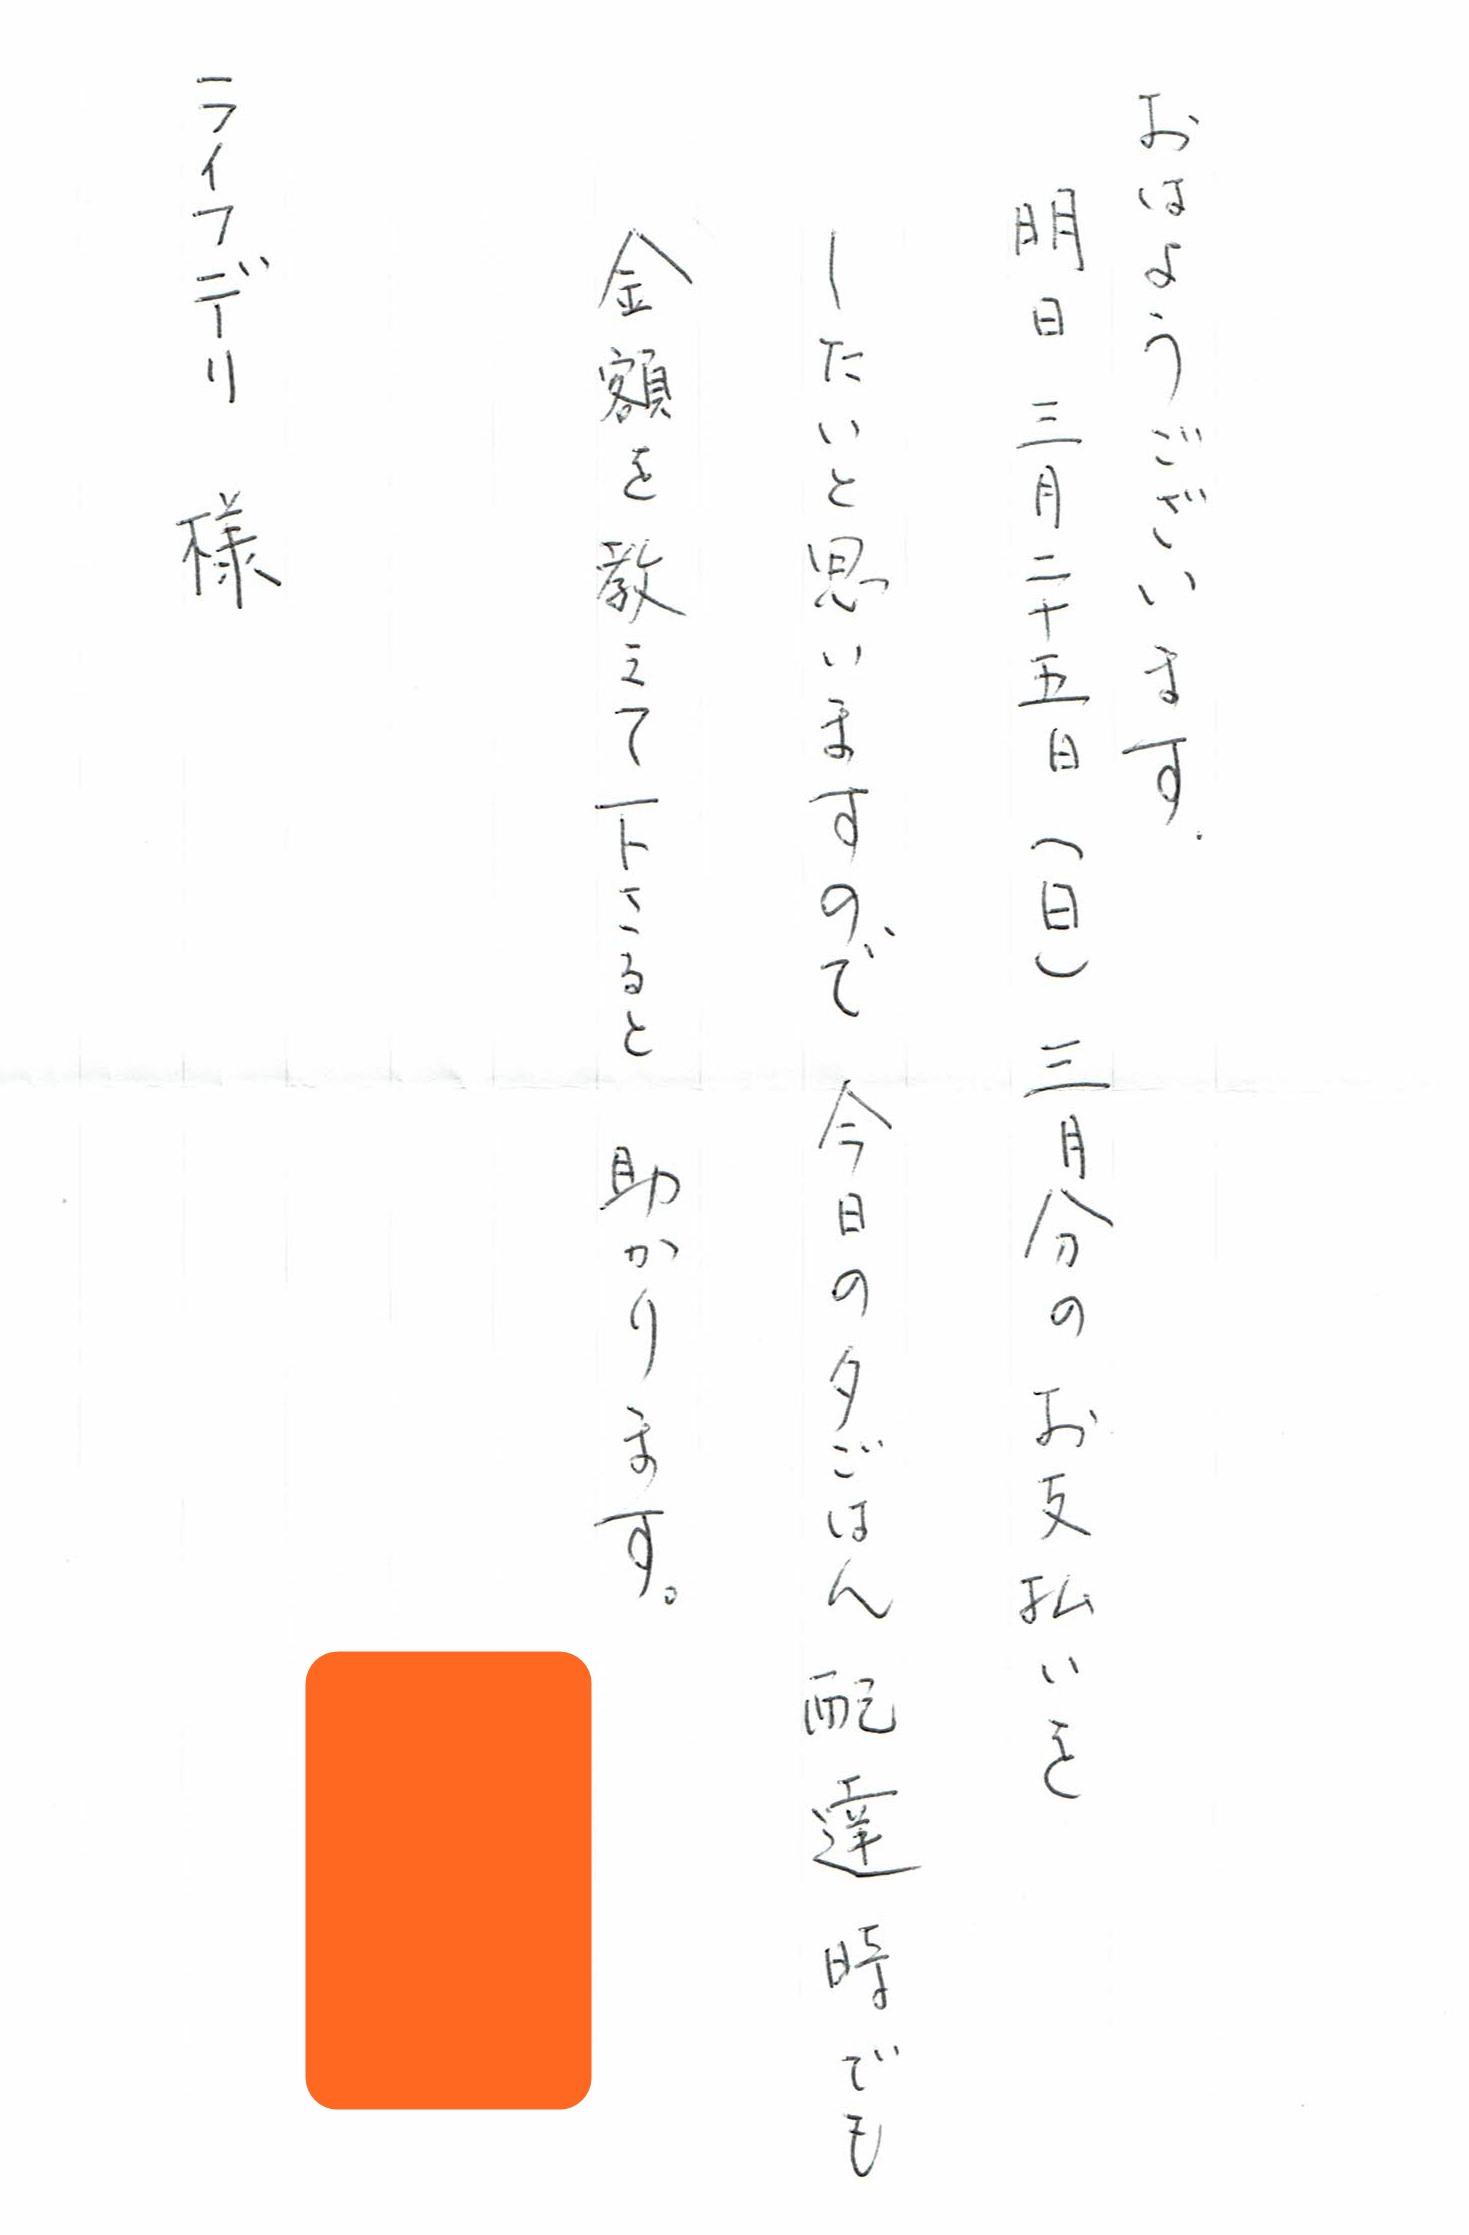 おはようございます.
明日 三月二十五日（日）三月分の お支払いを
したいと思いますので 今日の夕ごはん 配達時でも
金額を教えて下さると 助かります。
ライフデーリ 様